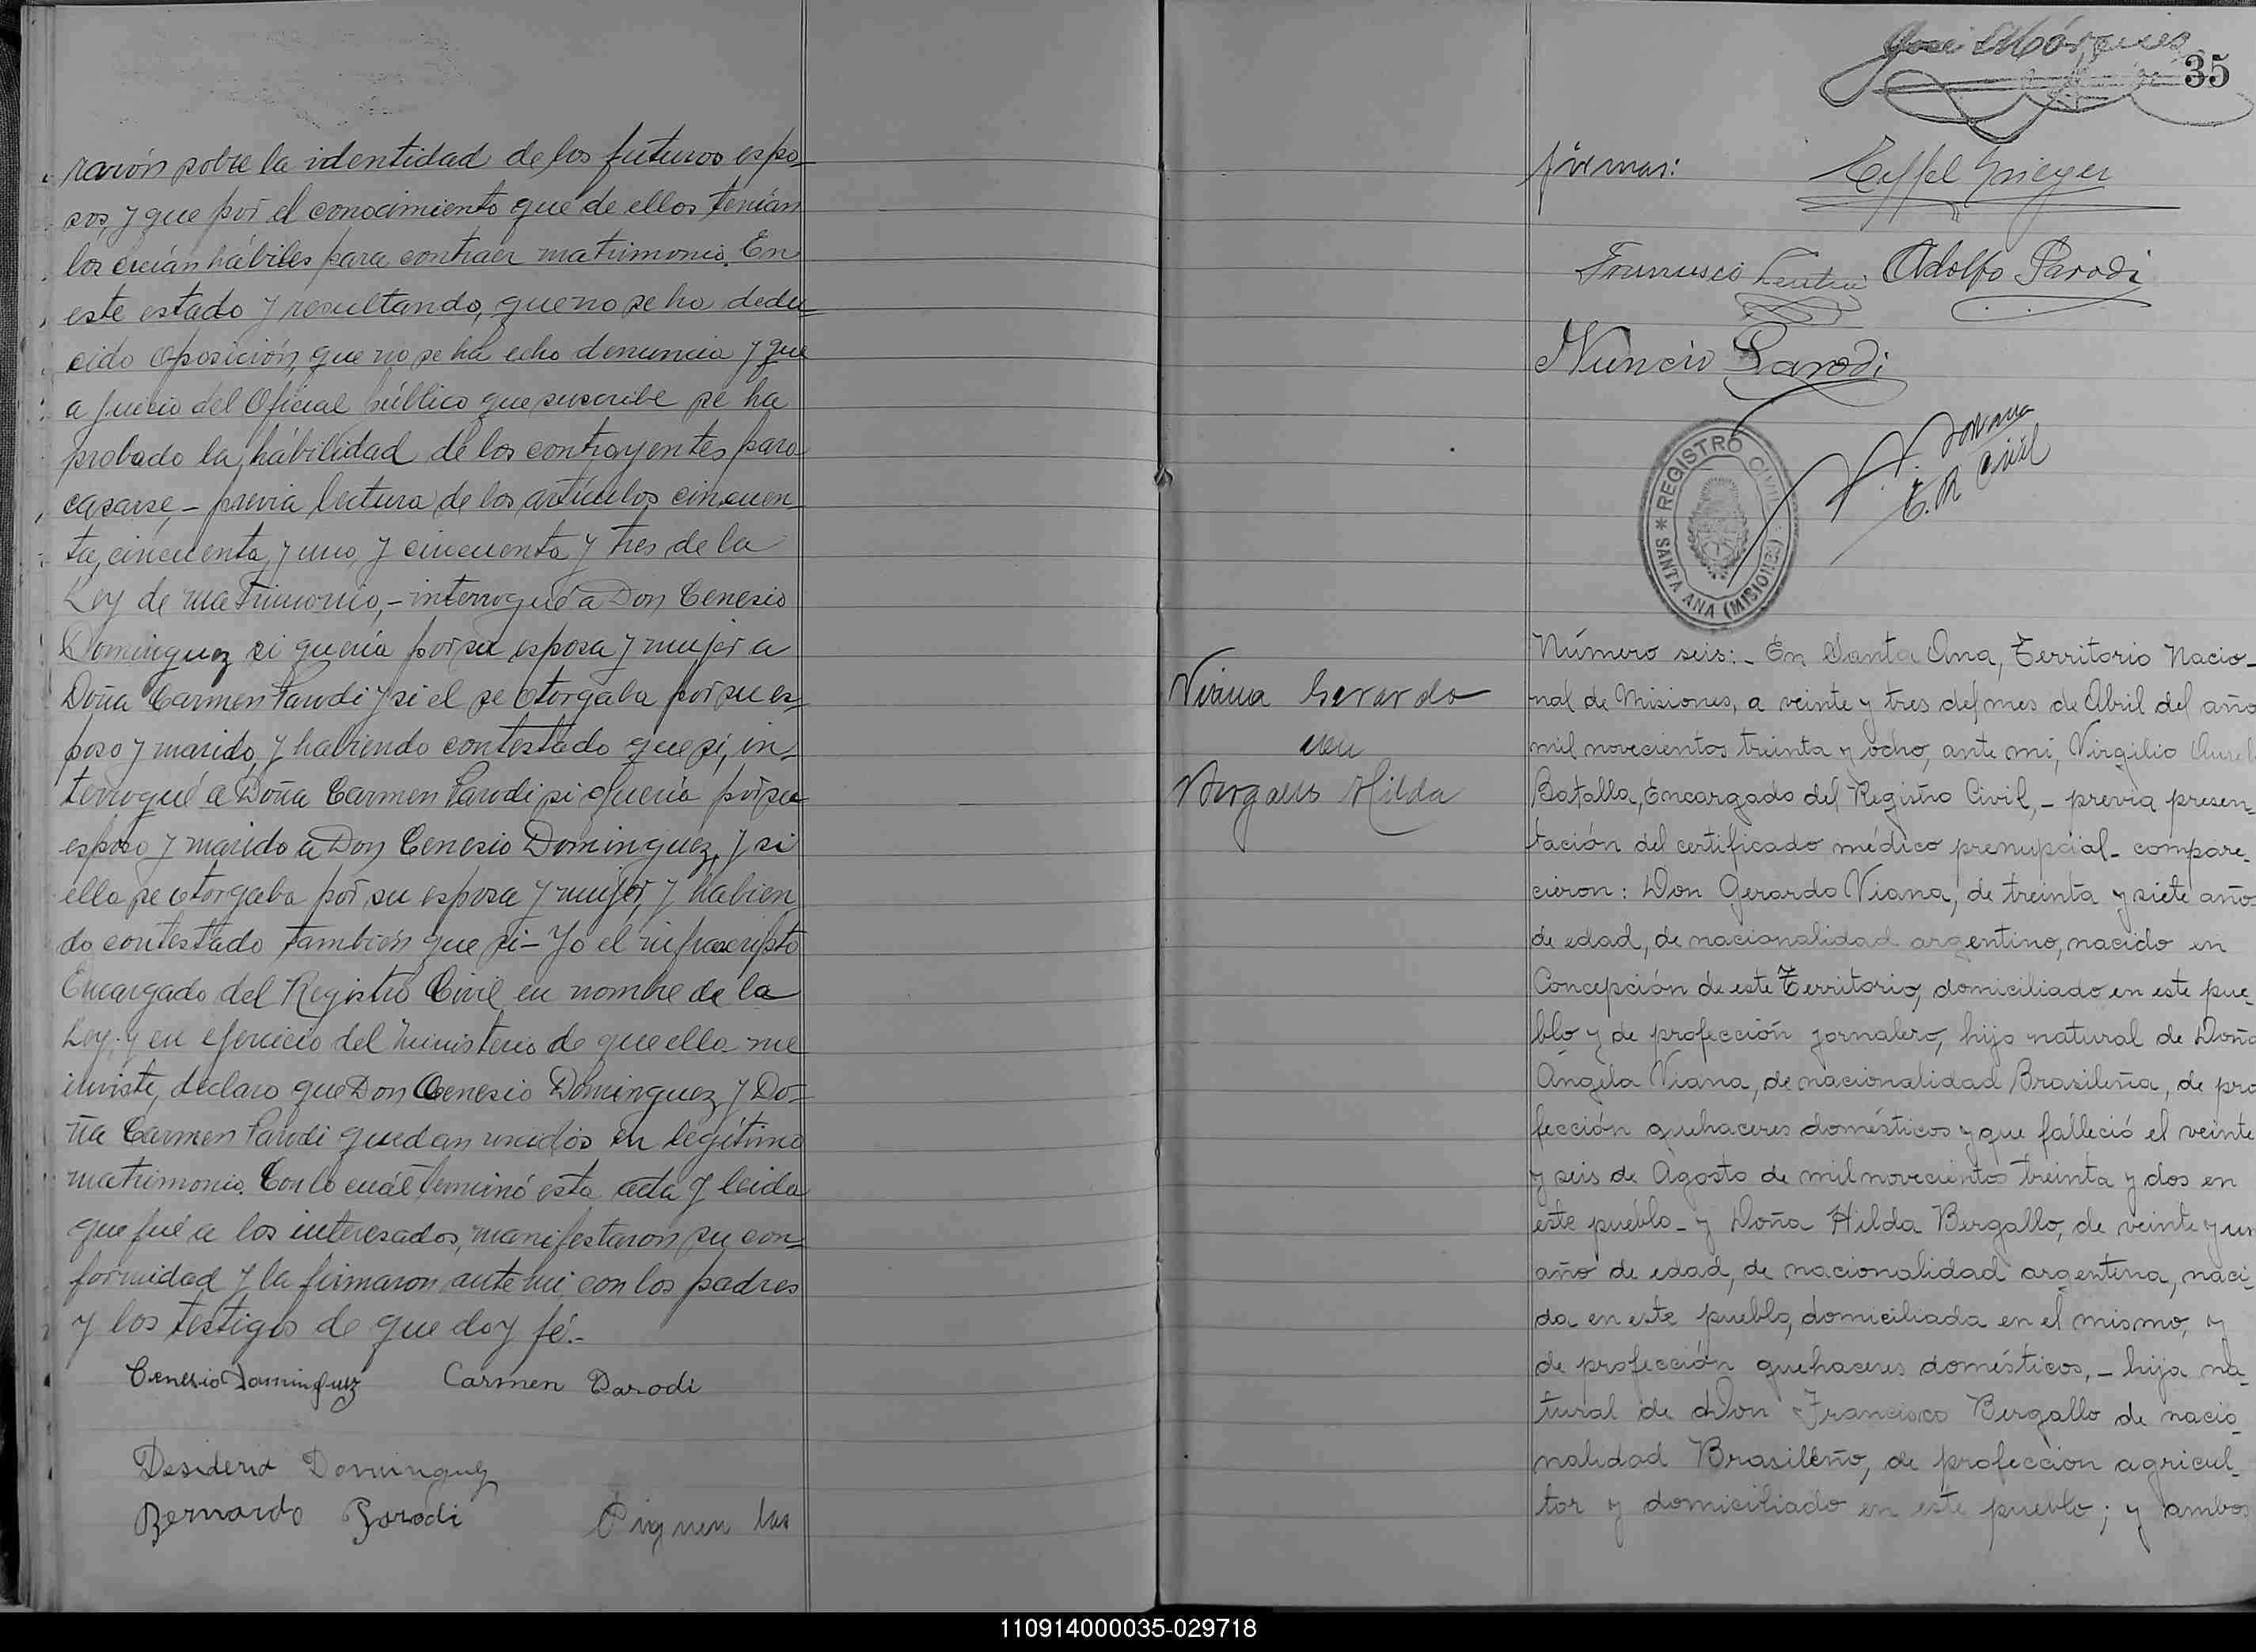 ración sobre la identidad de los futuros espo-
sos, y que por el conocimiento que de ellos tenían
los creían hábiles para contraer matrimonio. En
este estado y resultando, que no se ha dedu-
cido oposición, que no se ha echo denuncia y que
a juicio del Oficial público que suscribe se ha
probado la hábilidad de los contrayentes para
casarse, - previa lectura de los artículos cincuen-
ta, cincuenta y uno, y cincuenta y tres de la
Ley de matrimonio, - interrogué a Don Cenesio
Dominguez si quería por su esposa y mujer a
Doña Carmen Parodi y si el se otorgaba por su es-
poso y marido, y habiendo contestado que si, in-
terrogué a Doña Carmen Parodi si quería por su
esposo y marido a Don Cenesio Dominguez, y si
ella se otorgaba por su esposa y mujer, y habien
do contestado también que si - Yo el infrascripto
Encargado del Registro Civil en nombre de la
Ley, y en ejercicio del ministerio de que ella me
inviste, declaro que Don Cenesio Dominguez y Do-
ña Carmen Parodi quedan unidos en legítimo
matrimonio. Con lo cuál terminó esta acta y leida
que fué a los interesados, manifestaron su con-
formidad y la firmaron ante mi, con los padres
y los testigos de que doy fé.-
Cenesio Dominguez Carmen Parodi
Desiderio Dominguez
Bernardo Parodi Siguen las
José Márquez
35
firmas:
Francisco Adolfo Parodi
Nuncio Parodi
E. R. Civil
* REGISTRO CIVIL * SANTA ANA (MISIONES)
Viana Gerardo
con
Vergallo Hilda
Número seis:- En Santa Ana, Territorio Nacio-
nal de Misiones, a veinte y tres del mes de Abril del año
mil novecientos treinta y ocho, ante mi, Virgilio
Batalla, Encargado del Registro Civil, - previa presen-
tación del certificado médico prenupcial - compare-
cieron: Don Gerardo Viana, de treinta y siete años
de edad, de nacionalidad argentino, nacido en
Concepción de este Territorio, domiciliado en este pue-
blo y de profección jornalero, hijo natural de Doña
Ángela Viana, de nacionalidad Brasileña, de pro
fección quehaceres domésticos y que falleció el veinte
y seis de Agosto de mil novecientos treinta y dos en
este pueblo - y Doña Hilda Bergallo, de veinte y un
año de edad, de nacionalidad argentina, naci-
da en este pueblo, domiciliada en el mismo, y
de profección quehaceres domésticos, - hija na-
tural de Don Francisco Bergallo de nacio-
nalidad Brasileño, de profección agricul-
tor y domiciliado en este pueblo; y ambos
110914000035-029718